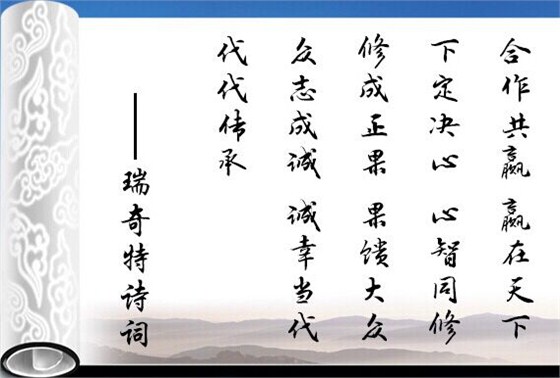 合作共赢 赢在天下
下定决心 心智同修
修成正果 果馈大众
众志成诚 诚幸当代
代代传承
——瑞奇特诗词